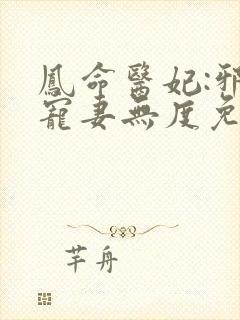 鳳命醫妃:邪
寵妻無度免
芊舟